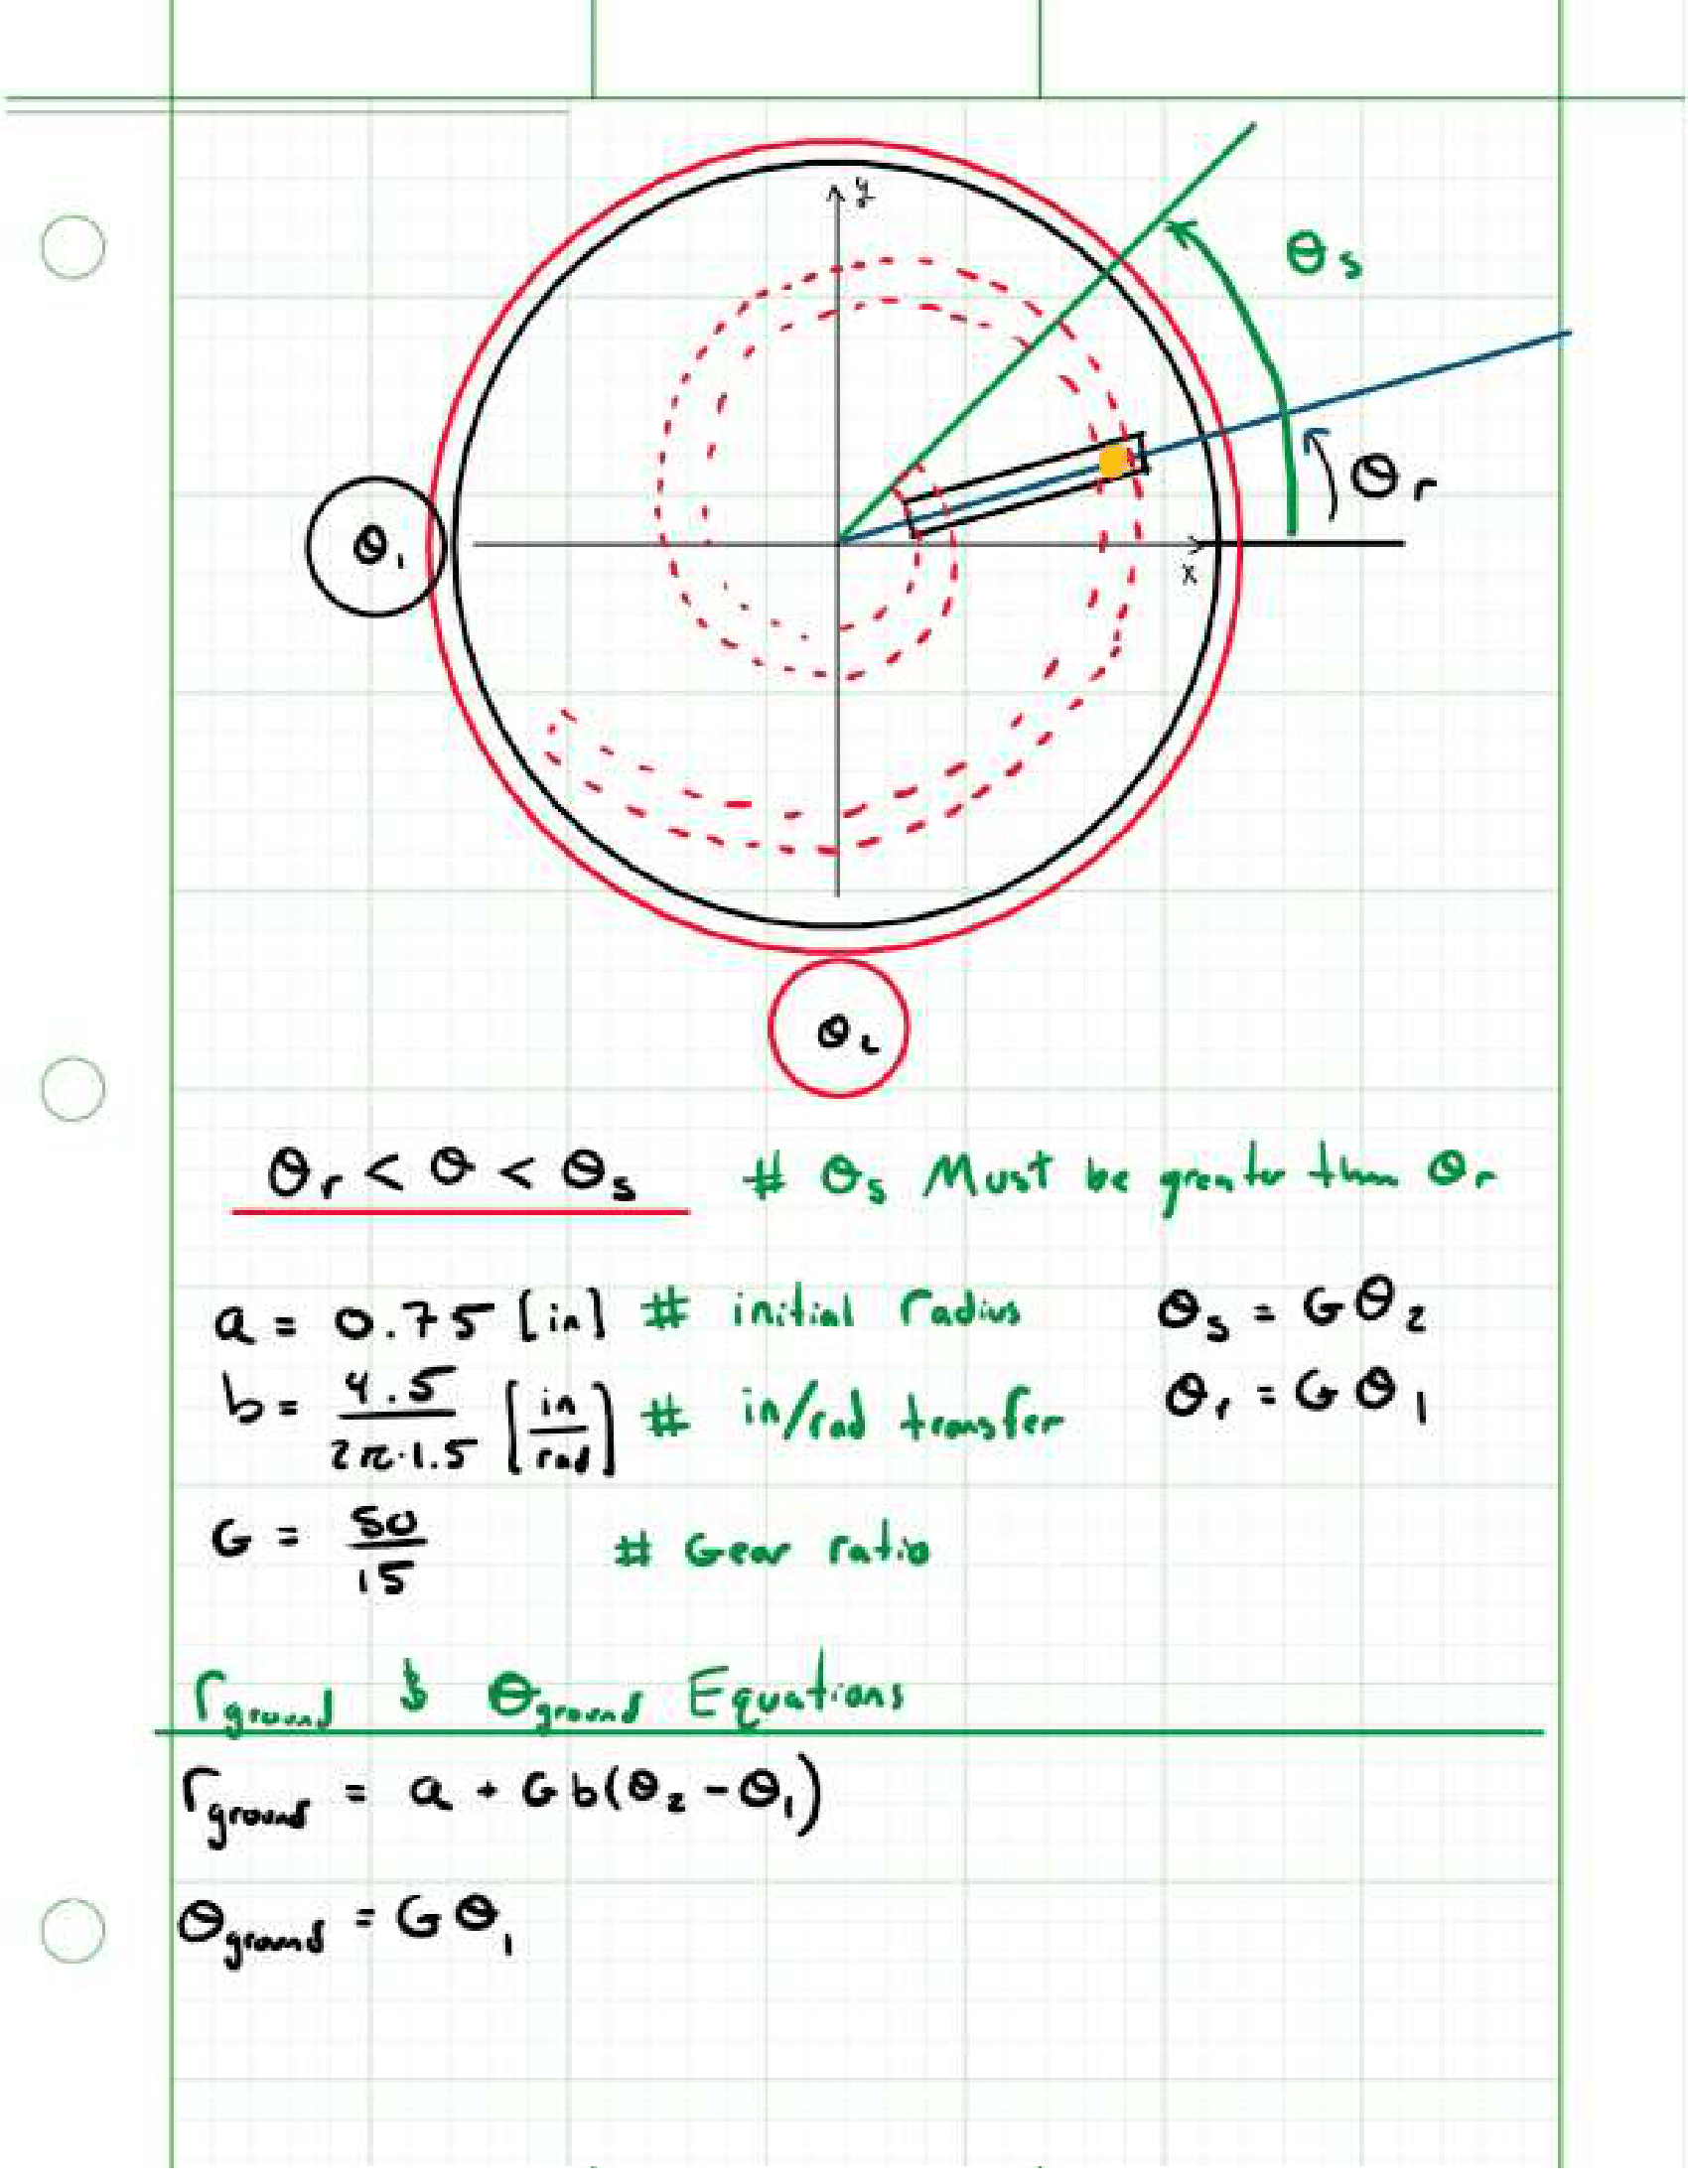 y
θs
θr
θ1
x
θ2
θr < θ < θs # θs Must be greater than θr
a = 0.75 [in] # initial radius θs = Gθ2
b = 4.5 / 2π·1.5 [in/rad] # in/rad transfer θr = Gθ1
G = 50/15 # Gear ratio
rground & θground Equations
rground = a + Gb(θ2 - θ1)
θground = Gθ1